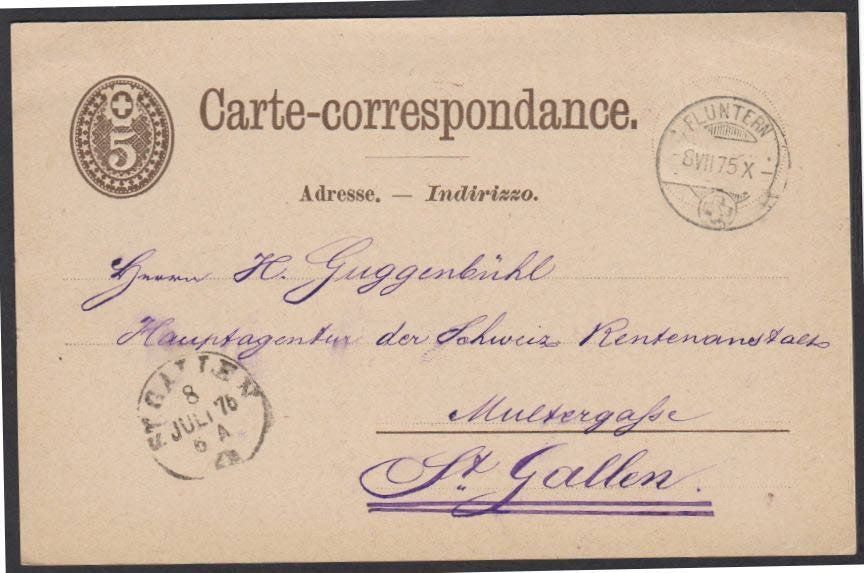 5
Carte-correspondance.
FLUNTERN
8 VII 75 X
Adresse. — Indirizzo.
Herrn H. Guggenbühl
Hauptagentur der Schweiz Rentenanstalt
Multergaße
St. Gallen.
ST GALLEN
8
JULI 76
6 A